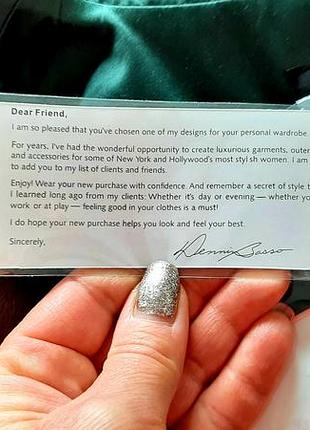 Dear Friend,
I am so pleased that you've chosen one of my designs for your personal wardrobe.
For years, I've had the wonderful opportunity to create luxurious garments, outer
and accessories for some of New York and Hollywood's most styl sh women. I am
to add you to my list of clients and friends.
Enjoy! Wear your new purchase with confidence. And remember a secret of style t
I learned long ago from my clients: Whether it's day or evening — whether you
work or at play — feeling good in your clothes is a must!
I do hope your new purchase helps you look and feel your best.
Sincerely,
Dennis Basso